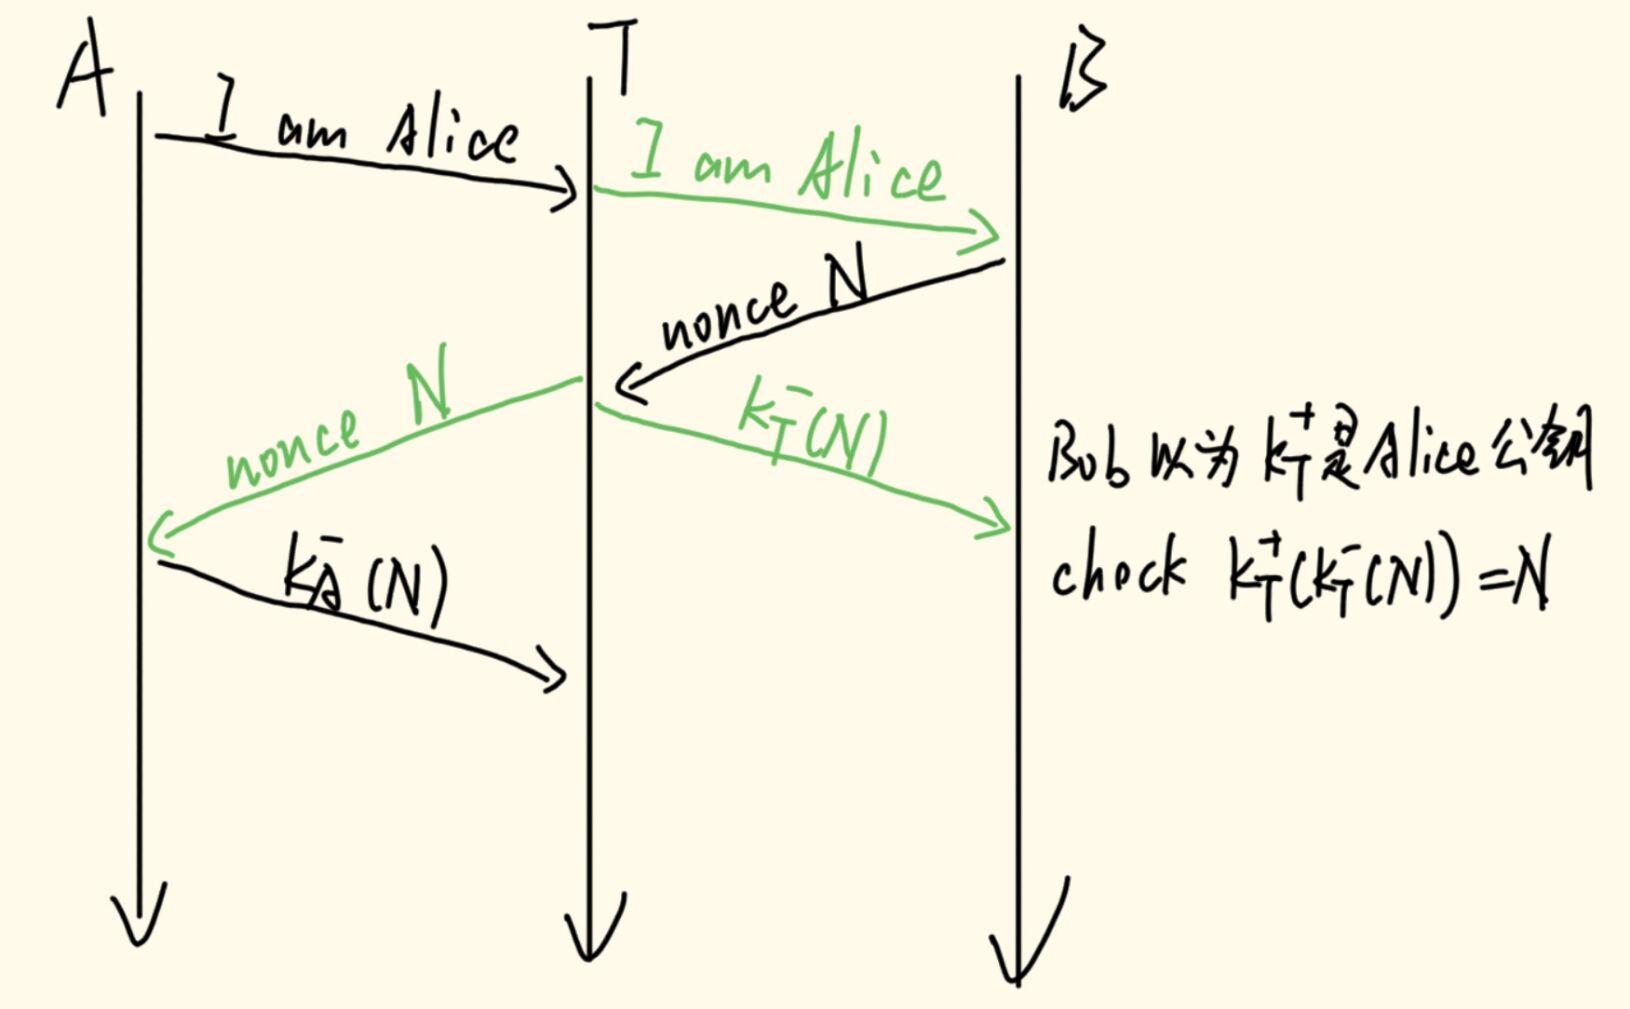 A
T
B
I am Alice
I am Alice
nonce N
nonce N
K_T^-(N)
K_A^-(N)
Bob 以为 K_T^+是Alice公钥
check K_T^+(K_T^-(N))=N